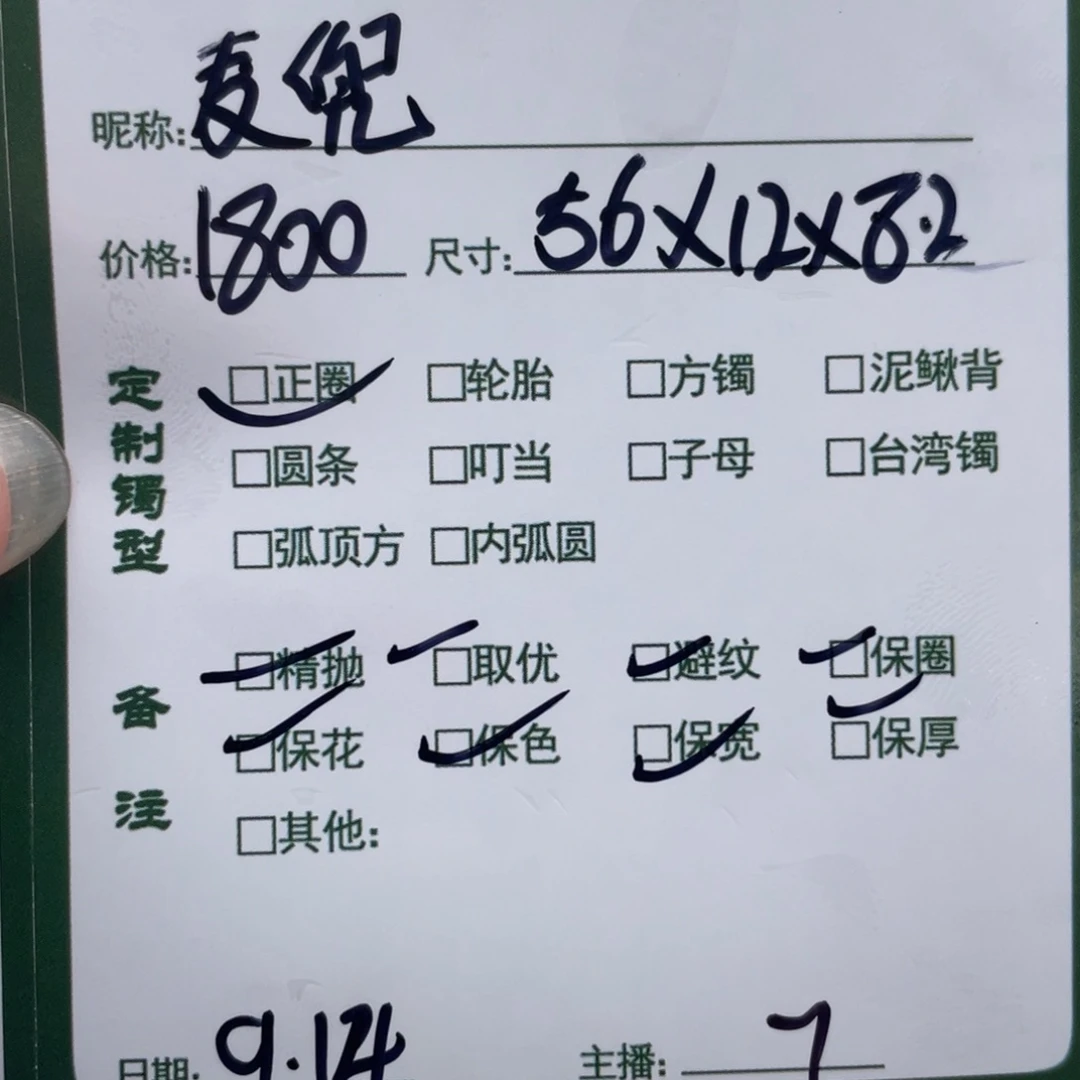 昵称:麦兜
价格:1800 尺寸:56X12X8.2
定制镯型
□正圈 □轮胎 □方镯 □泥鳅背
□圆条 □叮当 □子母 □台湾镯
□弧顶方 □内弧圆
备注
□精抛 □取优 □避纹 □保圈
□保花 □保色 □保宽 □保厚
□其他:
日期:9.14 主播:7